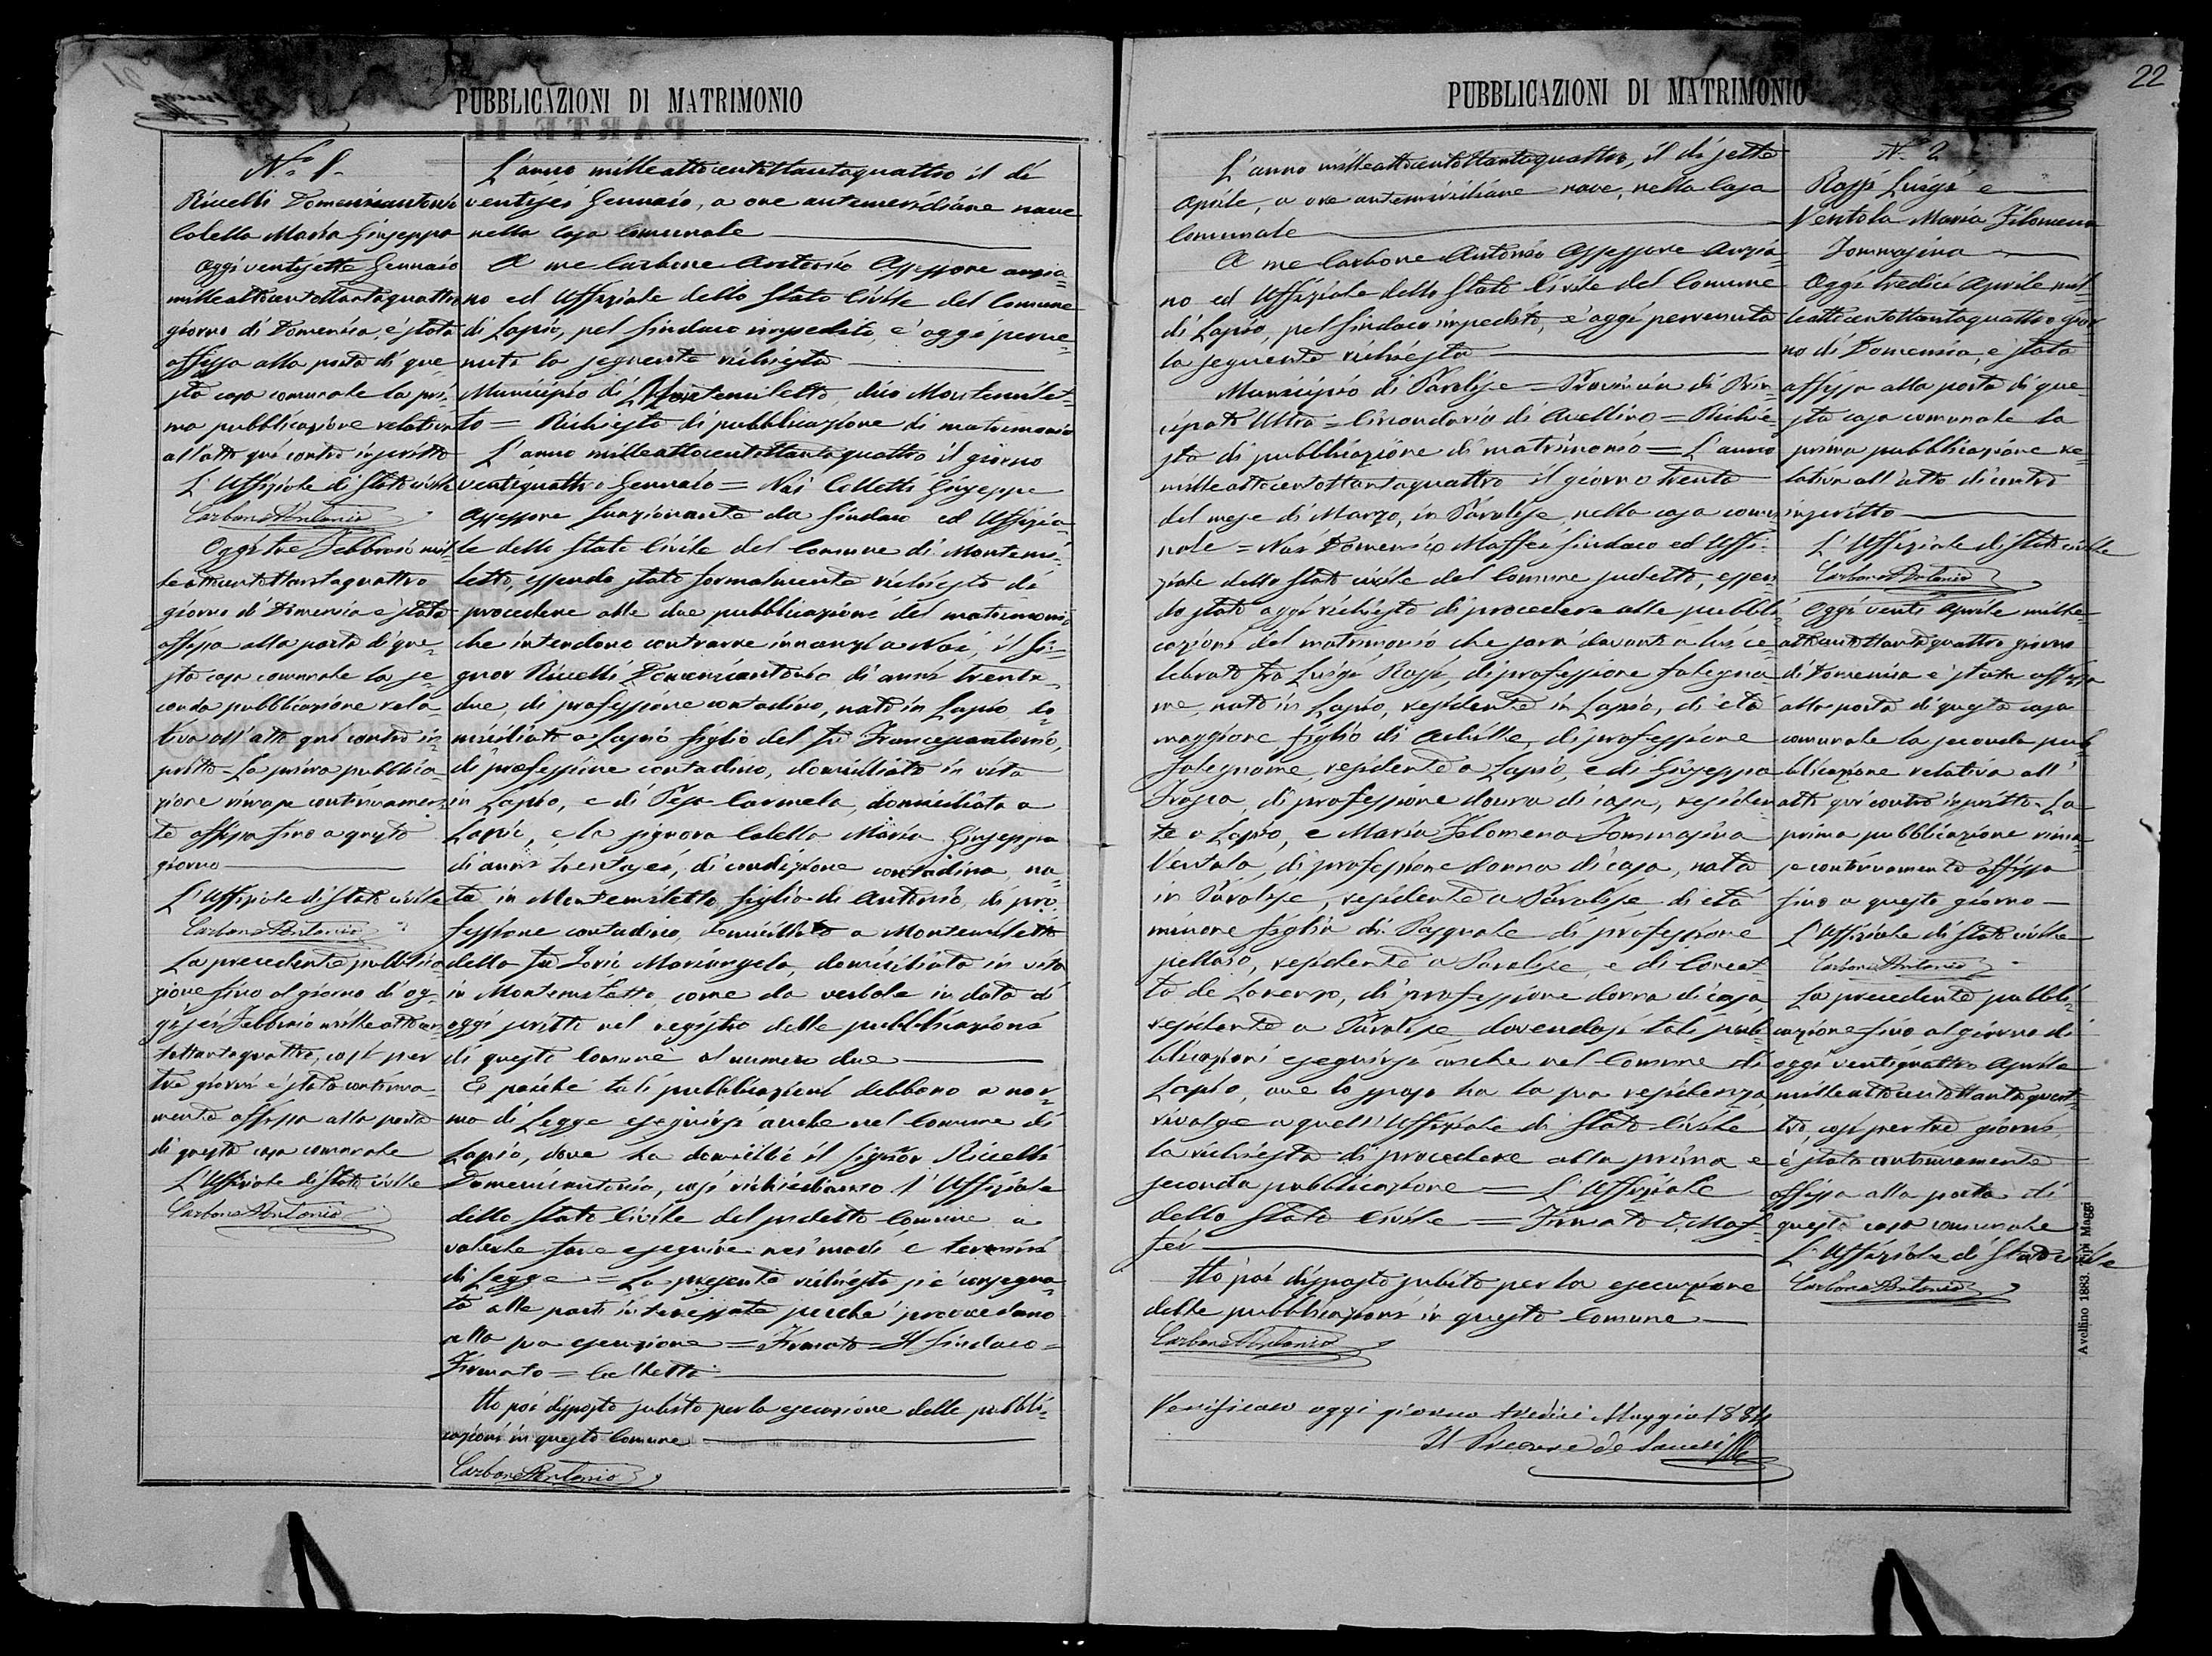 22
PUBBLICAZIONI DI MATRIMONIO
N.o 1.
Riccelli Domenicantonio
Colella Maria Giuseppa
Oggi ventisette Gennaio
milleottocentottantaquattro
giorno di Domenica, è stata
affissa alla porta di que=
sta casa comunale la pri=
ma pubblicazione relativa
all'atto qui contro inscritto
L'Uffiziale di Stato civile
Carbone Antonio
Oggi tre Febbraio mil=
leottocentottantaquattro
giorno di Domenica è stata
affissa alla porta di que=
sta casa comunale la se=
conda pubblicazione rela=
tiva all'atto qui contro in=
scritto - La prima pubblica=
zione rimase continuamen=
te affissa fino a questo
giorno
L'Uffiziale di Stato civile
Carbone Antonio
La precedente pubblica=
zione fino al giorno di og=
gi sei Febbraio milleottocen=
tottantaquattro, cosi per
tre giorni è stata continua=
mente affissa alla porta
di questa casa comunale
L'Uffiziale di Stato civile
Carbone Antonio
L'anno milleottocentottantaquattro il dì
ventisei Gennaio, a ore antemeridiane nove
nella casa Comunale
A me Carbone Antonio Assessore anzia=
no ed Uffiziale dello Stato Civile del Comune
di Lapio, pel Sindaco impedito, è oggi perve=
nuta la seguente richiesta
Municipio di Montemiletto, dico Montemilet=
to = Richiesta di pubblicazione di matrimonio
L'anno milleottocentottantaquattro il giorno
ventiquattro Gennaio = Noi Colletti Giuseppe
Assessore funzionante da Sindaco ed Uffizia=
le dello Stato Civile del Comune di Montemi=
letto, essendo stato formalmente richiesto di
procedere alle due pubblicazioni del matrimonio
che intendono contrarre innanzi a Noi, il Si=
gnor Riccelli Domenicantonio di anni trenta=
due, di professione contadino, nato in Lapio do=
miciliato a Lapio figlio del fu Francescantonio,
di professione contadino, domiciliato in vita
in Lapio, e di Pesa Carmela, domiciliata a
Lapio, e la signora Colella Maria Giuseppa
di anni trentasei, di condizione contadina, na=
ta in Montemiletto, figlia di Antonio, di pro=
fessione contadino, domiciliato a Montemiletto
della fu Mariangela, domiciliata in vita
in Montemiletto, come da verbale in data di
oggi scritto nel registro delle pubblicazioni
di questo Comune al numero due
E poichè tali pubblicazioni debbono a nor=
ma di Legge eseguirsi anche nel Comune di
Lapio, dove ha domicilio il Signor Riccelli
Domenicantonio, così richiediamo l'Uffiziale
dello Stato Civile del sudetto Comune a
volerle fare eseguire nei modi e termini
di Legge = La presente richiesta si è consegna=
ta alle parti interessate perchè provvedano
alla sua esecuzione = Firmato = Il Sindaco =
Firmato = Colletti
Ho poi disposto subito per la esecuzione delle pubbli=
cazioni in questo Comune
Carbone Antonio
PUBBLICAZIONI DI MATRIMONIO
L'anno milleottocentottantaquattro, il dì sette
Aprile, a ore antemeridiane nove, nella Casa
Comunale
A me Carbone Antonio Assessore Anzia=
no ed Uffiziale dello Stato Civile del Comune
di Lapio, pel Sindaco impedito, è oggi pervenuta
la seguente richiesta
Municipio di Parolise = Provincia di Prin=
cipato Ultra = Circondario di Avellino = Richie=
sta di pubblicazione di matrimonio = L'anno
milleottocentottantaquattro il giorno trenta
del mese di Marzo, in Parolise, nella casa comu=
nale = Noi Domenico Maffei Sindaco ed Uffi=
ziale dello Stato civile del Comune sudetto, essen=
do stato oggi richiesto di procedere alle pubbli=
cazioni del matrimonio che sarà davanti a lui ce=
lebrato fra Luigi Rossi, di professione falegna=
me, nato in Lapio, residente in Lapio, di età
maggiore figlio di Achille, di professione
falegname, residente a Lapio, e di Giuseppa
Frasca, di professione donna di casa, residen=
te a Lapio, e Maria Filomena Tommasina
Ventola, di professione donna di casa, nata
in Parolise, residente a Parolise di età
minore figlia di Pasquale di professione
residente a Parolise, e di Concet=
ta de Lorenzo, di professione donna di casa,
residente a Parolise, dovendosi tali pub=
blicazioni eseguirsi anche nel Comune di
Lapio, ove lo sposo ha la sua residenza,
rivolge a quell'Uffiziale di Stato Civile
la richiesta di procedere alla prima e
seconda pubblicazione = L'Uffiziale
dello Stato Civile = Firmato D. Maf=
fei
Ho poi disposto subito per la esecuzione
delle pubblicazioni in questo Comune
Carbone Antonio
Verificato oggi giorno tredici Maggio 1884
Il Pretore
N.o 2
Rossi Luigi e
Ventola Maria Filomena
Tommasina
Oggi tredici Aprile mil=
leottocentottantaquattro gior=
no di Domenica, è stata
affissa alla porta di que=
sta casa comunale la
prima pubblicazione re=
lativa all'atto di contro
inscritto
L'Uffiziale di Stato civile
Carbone Antonio
Oggi venti Aprile mille=
ottocentottantaquattro giorno
di Domenica è stata affissa
alla porta di questa casa
comunale la seconda pub=
blicazione relativa all'
atto qui contro inscritto - La
prima pubblicazione rima=
se continuamente affissa
fino a questo giorno
L'Uffiziale di Stato civile
Carbone Antonio
La precedente pubbli=
cazione fino al giorno di
oggi ventiquattro Aprile
milleottocentottantaquat=
tro, così per tre giorni
è stata continuamente
affissa alla porta di
questa casa comunale
L'Uffiziale di Stato civile
Carbone Antonio
Avellino 1883. Tipi Maggi